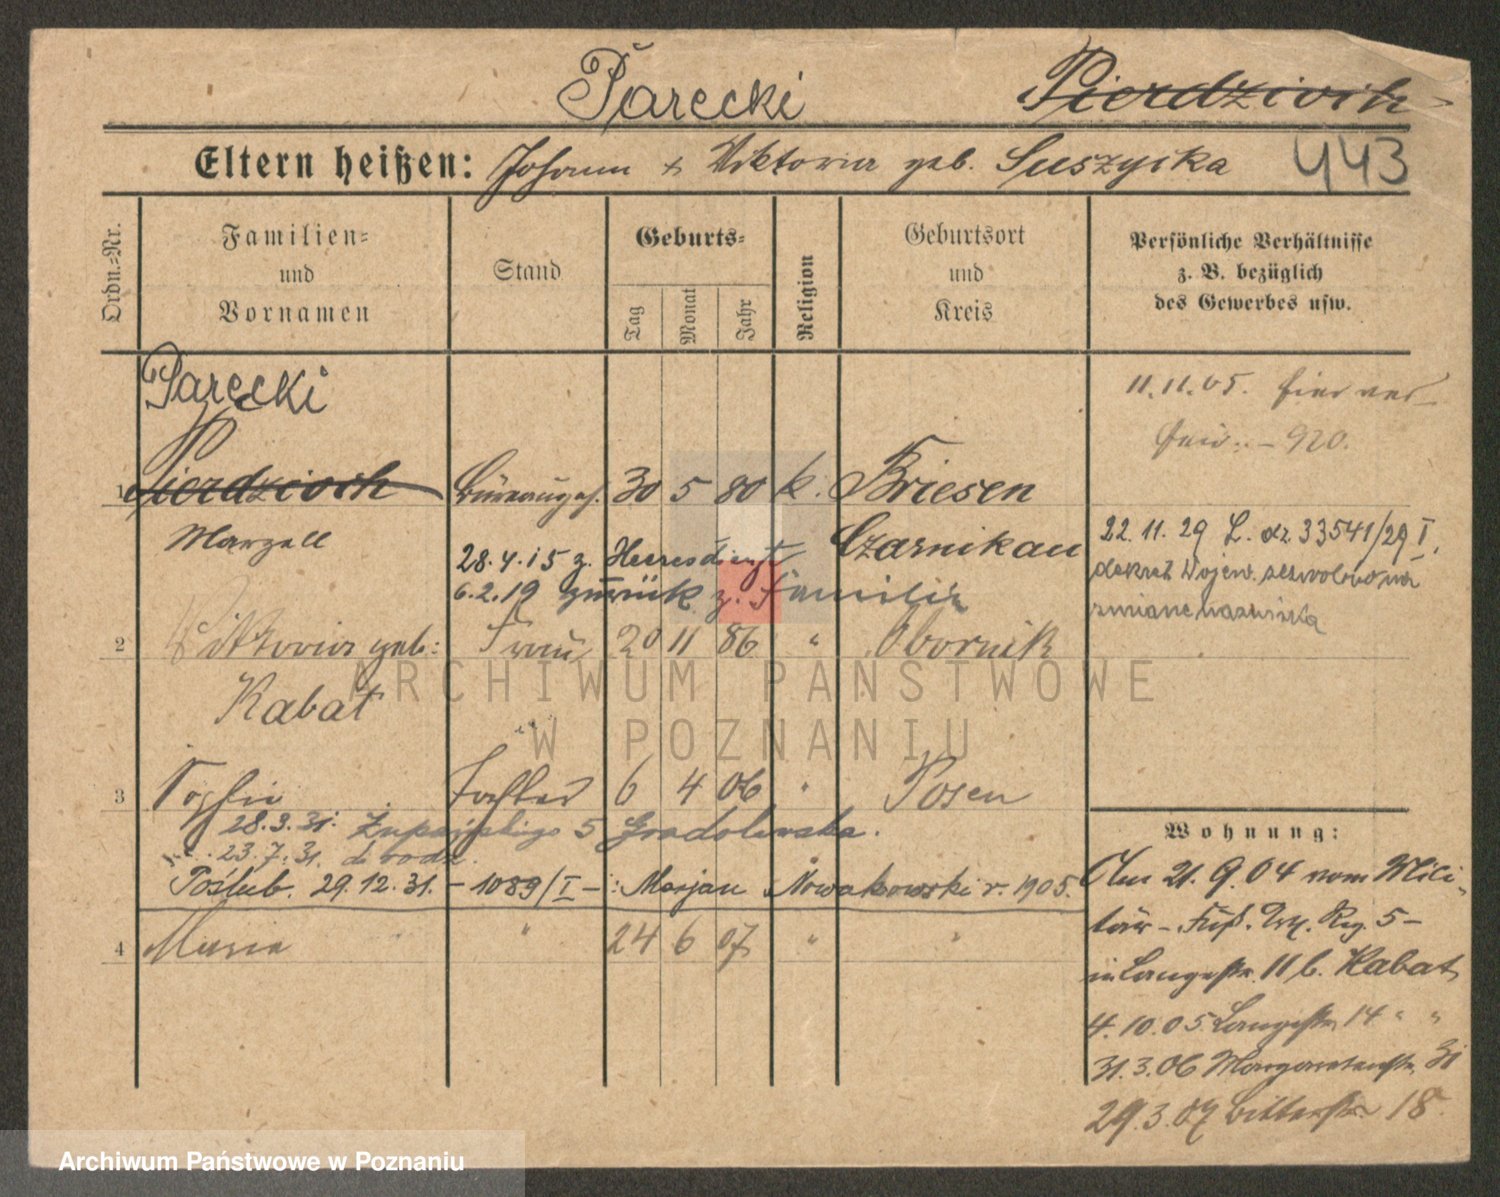 Parecki Pierdzioch
Eltern heißen: Johann & Viktoria geb. Suszycka 443
Ordn.-Nr.
Familien- und Vornamen
Stand
Geburts-
Tag Monat Jahr
Religion
Geburtsort und Kreis
Persönliche Verhältnisse
z. B. bezüglich
des Gewerbes usw.
Parecki
11.11.05.
920.
1 Pierdzioch Büreaugeh. 30 5 80 k. Briesen
Marzell Czarnikau
28.4.15 z. Heeresdienst
6.2.19 zurück z. Familie
22.11.29 L. dz 33541/29 I.
dekret Wojew. zezwolono na
zmianę nazwiska
2 Viktoria geb: Frau 20 11 86 " Obornik
Kabat
3 Sophie Tochter 6 4 06 " Posen
28.3.31. Żupańskiego 5 Gradolewska.
23.7.31. do rodz.
Poślub. 29.12.31. – 1089/I – : Marjan Nowakowski r. 1905.
4 Maria " 24 6 07 " "
Wohnung:
Am 21.9.04 vom Mili-
tär – Fuß. Reg. 5 –
in Langestr. 11 b. Kabat
4.10.05 Langestr. 14 " "
31.3.06 Margaretenstr. 31
29.3.07 Bitterstr. 18
ARCHIWUM PAŃSTWOWE
W POZNANIU
Archiwum Państwowe w Poznaniu